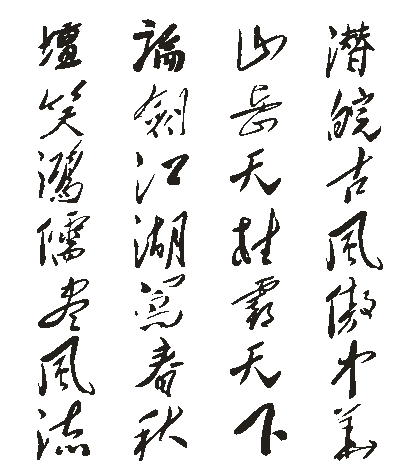 潜皖古風傲中華
山岳天柱霸天下
論劍江湖寫春秋
壇笑鴻儒盡風流